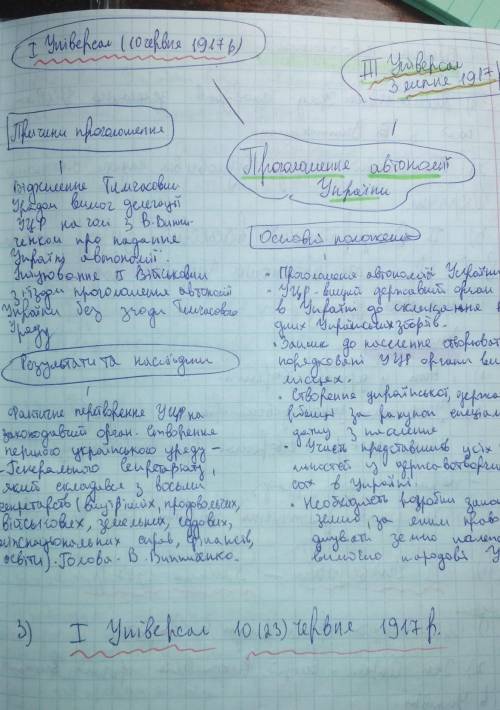 I Універсал (10 червня 1917р)
III Універсал
3 липня 1917р
Причини проголошення
Проголошення автономії
України
Відхилення Тимчасовим
Урядом вимог делегації
УЦР на чолі з В. Винни-
ченком про надання
Україні автономії.
II Військовим
з'їздом проголошення автономії
України без згоди Тимчасового
Уряду
Основні положення
• Проголошення автономії України
• УЦР - вищий державний орган
в Україні до скликання
Українських зборів.
• Заклик до населення створюват
порядковані УЦР органи вла
місцях.
• Створення української держа
за рахунок спеціал
датку з населення
• Участь представників усіх
у державотворчих
сах в Україні.
• Необхідність розробки зако
землю, за яким право
землю належ
виключно народові У
Результати та наслідки
Фактичне перетворення УЦР на
законодавчий орган. Створення
першого українського уряду -
- Генерального Секретаріату,
який складався з восьми
секретарств (внутрішніх, продовольчих,
військових, земельних, судових,
міжнаціональних справ, фінансів,
освіти). Голова - В. Винниченко.
3) I Універсал 10 (23) червня 1917 р.